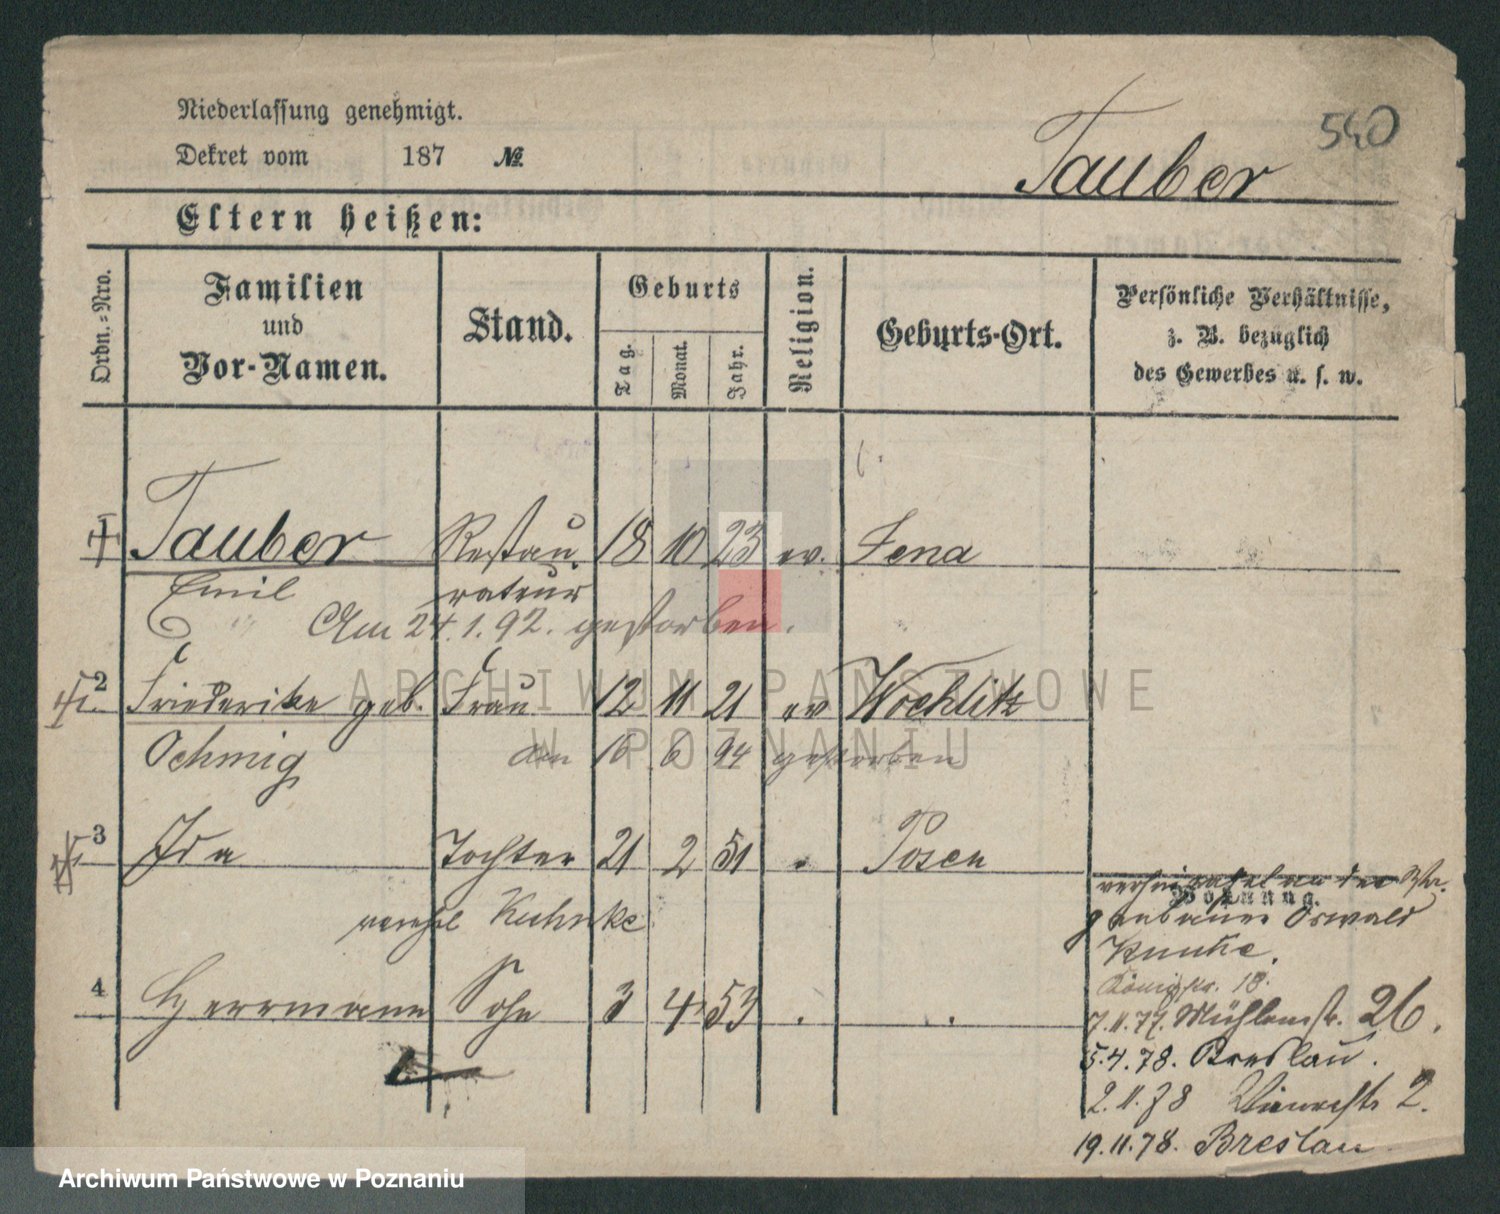 Niederlassung genehmigt.
540
Dekret vom 187 №.
Tauber
Eltern heißen:
Ordn.-Nro.
Familien und Vor-Namen.
Stand.
Geburts
Tag.
Monat.
Jahr.
Religion.
Geburts-Ort.
Persönliche Verhältnisse, z. B. bezüglich des Gewerbes u. s. w.
Tauber Restau- 18 10 23 ev. Jena
Emil rateur
Am 24.1.92. gestorben.
2 Friederike geb. Frau 12 11 21 ev Wochlitz
Oehmig am 16 6 94 gestorben
3 Ida Tochter 21 2 51 " Posen
verehel Kuhnke
Wohnung.
Oswald
Königstr. 18.
4 Herrmann Sohn 3 4 53 " "
7.11.77. Mühlenstr. 26.
5.4.78. Breslau.
2.11.78 2.
19.11.78. Breslau.
ARCHIWUM PAŃSTWOWE
W POZNANIU
Archiwum Państwowe w Poznaniu